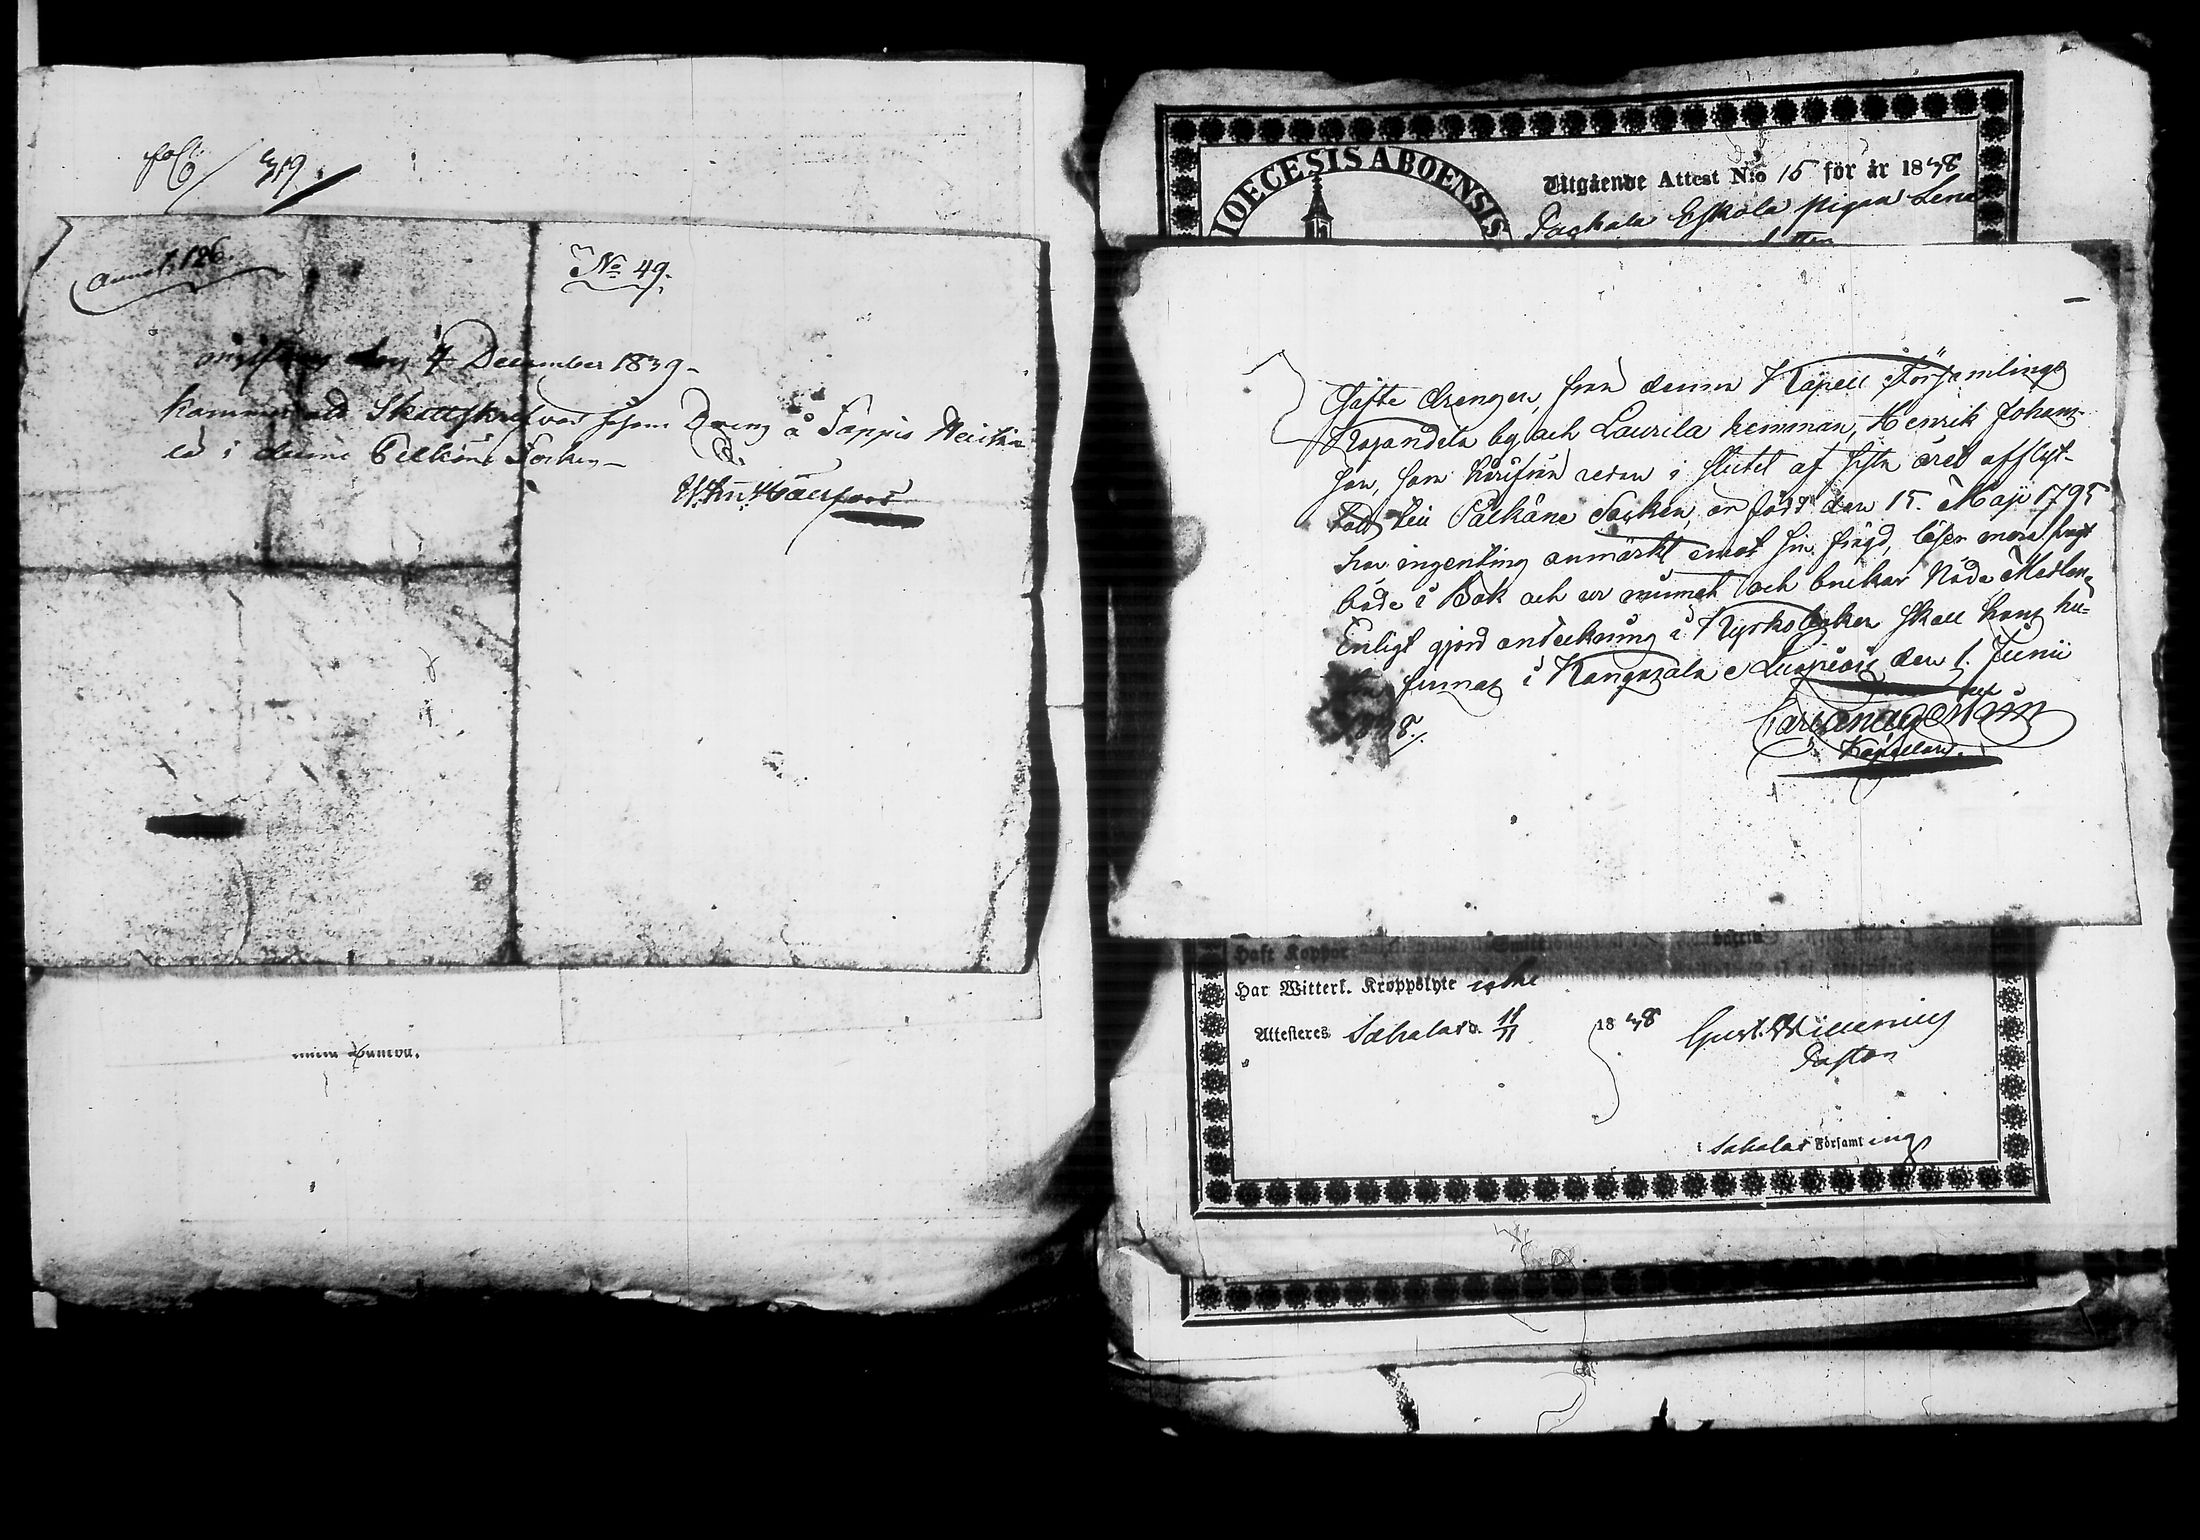 fol: 319.
annot: 126.
No 49.
den 4 December 1839 –
kommer att Skattskrifvas såsom Dreng å Sappis Heikki
lä i denne Pelkäne Socken –
DIOECESIS ABOENSIS
Utgående Attest N:o 15 för år 1838
Eskola pigan Lena
Gifte drengen, från denna Kapell Församlings
by och Laurila hemman, Henrik Johans-
son, som härifrån redan i slutet af sista året afflyt-
tat till Pälkäne Socken, är född den 15. Maji 1795
har ingenting anmärkt emot sin frägd, läser
både i Bok och ur minnet och brukar Nåde Medlen.
Enligt gjord anteckning i Kyrkoboken skall hans hu-
finnas i Kangasala. den 1. Junii
1838.
Kapellan.
Haft Koppor
Har Witterl. Kroppslyte icke
Attesteres Sahalax d. 11/11 1838
Pastor
i Sahalax Församling